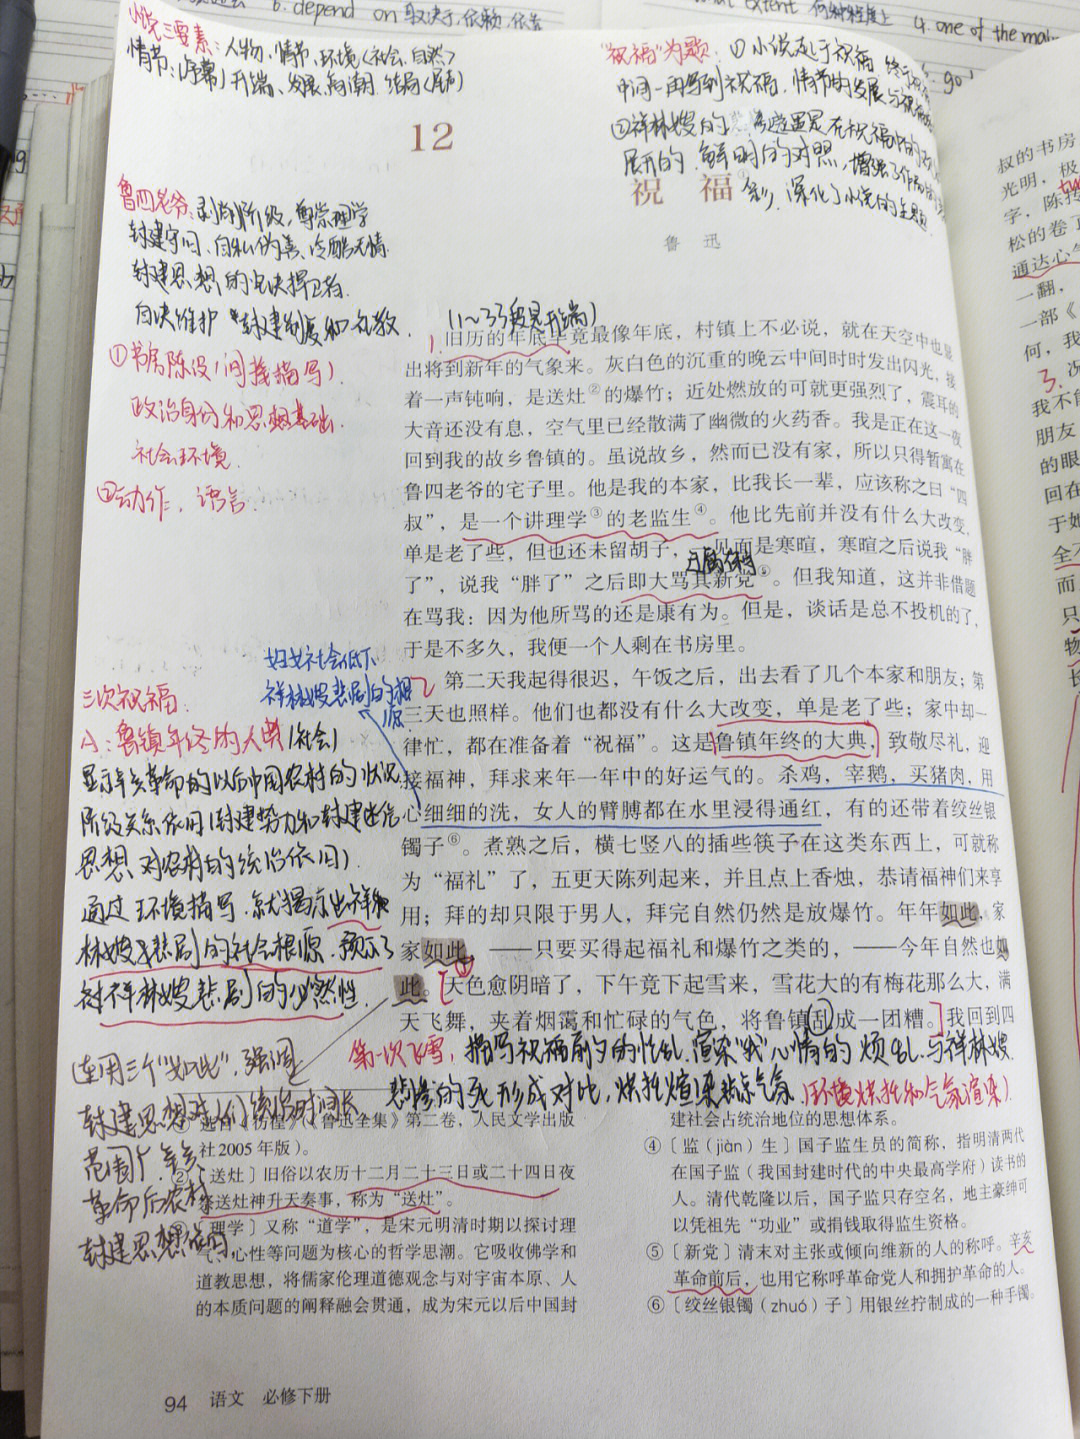 6. depend on 取决于,依赖,依靠
extent 何种程度上
4. one of the main
小说三要素:人物、情节、环境(社会、自然)
情节:(序幕)开端、发展、高潮、结局(尾声)
"祝福"为题:①小说起于祝福
中间一再写到祝福,情节的发展与祝福
②祥林嫂的悲惨遭遇是在祝福中
展开的,鲜明的对照,增强了作品的
深化了小说的主题
12
祝 福
鲁 迅
鲁四老爷:剥削阶级,尊崇理学
封建守旧、自私伪善、冷酷无情
封建思想的坚决捍卫者
自决维护 封建制度和礼教.
①书房陈设(间接描写)
政治身份和思想基础
社会环境
②动作,语言
1
旧历的年底毕竟最像年底,村镇上不必说,就在天空中也显
出将到新年的气象来。灰白色的沉重的晚云中间时时发出闪光,接
着一声钝响,是送灶②的爆竹;近处燃放的可就更强烈了,震耳的
大音还没有息,空气里已经散满了幽微的火药香。我是正在这一夜
回到我的故乡鲁镇的。虽说故乡,然而已没有家,所以只得暂寓在
鲁四老爷的宅子里。他是我的本家,比我长一辈,应该称之曰“四
叔”,是一个讲理学③的老监生④。他比先前并没有什么大改变,
单是老了些,但也还未留胡子,一见面是寒暄,寒暄之后说我“胖
了”,说我“胖了”之后即大骂其新党⑤。但我知道,这并非借题
在骂我:因为他所骂的还是康有为。但是,谈话是总不投机的了,
于是不多久,我便一个人剩在书房里。
妇女社会低下
祥林嫂悲剧的根源
2
第二天我起得很迟,午饭之后,出去看了几个本家和朋友;第
三天也照样。他们也都没有什么大改变,单是老了些;家中却一
律忙,都在准备着“祝福”。这是鲁镇年终的大典,致敬尽礼,迎
接福神,拜求来年一年中的好运气的。杀鸡,宰鹅,买猪肉,用
心细细的洗,女人的臂膊都在水里浸得通红,有的还带着绞丝银
镯子⑥。煮熟之后,横七竖八的插些筷子在这类东西上,可就称
为“福礼”了,五更天陈列起来,并且点上香烛,恭请福神们来享
用;拜的却只限于男人,拜完自然仍然是放爆竹。年年如此,家
家如此,——只要买得起福礼和爆竹之类的,——今年自然也如
此。天色愈阴暗了,下午竟下起雪来,雪花大的有梅花那么大,满
天飞舞,夹着烟霭和忙碌的气色,将鲁镇乱成一团糟。我回到四
三次祝福
A:鲁镇年终的大典(社会)
显示辛亥革命的以后中国农村的状况
阶级关系依旧(封建势力和封建迷信
思想对农村的统治依旧).
通过环境描写,就揭示出祥
林嫂悲剧的社会根源,预示了
祥林嫂悲剧的必然性.
连用三个"如此",强调
封建思想对人们统治时间长
范围广,辛亥
革命后农村
封建思想依旧
第一次飞雪,描写祝福前夕的忙乱,渲染"我"心情的烦乱,与祥林嫂
悲惨的死形成对比,烘托渲染悲凉气氛.(环境烘托和气氛渲染)
《鲁迅全集》第二卷,人民文学出版
社2005年版)。
②〔送灶〕旧俗以农历十二月二十三日或二十四日夜
送灶神升天奏事,称为“送灶”。
③〔理学〕又称“道学”,是宋元明清时期以探讨理
气、心性等问题为核心的哲学思潮。它吸收佛学和
道教思想,将儒家伦理道德观念与对宇宙本原、人
的本质问题的阐释融会贯通,成为宋元以后中国封
建社会占统治地位的思想体系。
④〔监(jiàn)生〕国子监生员的简称,指明清两代
在国子监(我国封建时代的中央最高学府)读书的
人。清代乾隆以后,国子监只存空名,地主豪绅可
以凭祖先“功业”或捐钱取得监生资格。
⑤〔新党〕清末对主张或倾向维新的人的称呼。辛亥
革命前后,也用它称呼革命党人和拥护革命的人。
⑥〔绞丝银镯(zhuó)子〕用银丝拧制成的一种手镯。
94 语文 必修下册
叔的书房
光明,极
字,陈抟
松的卷
通达心气
一翻,
一部《
何,我
3. 况
我不能
朋友
的眼
回在
于她
全不
而
只
物